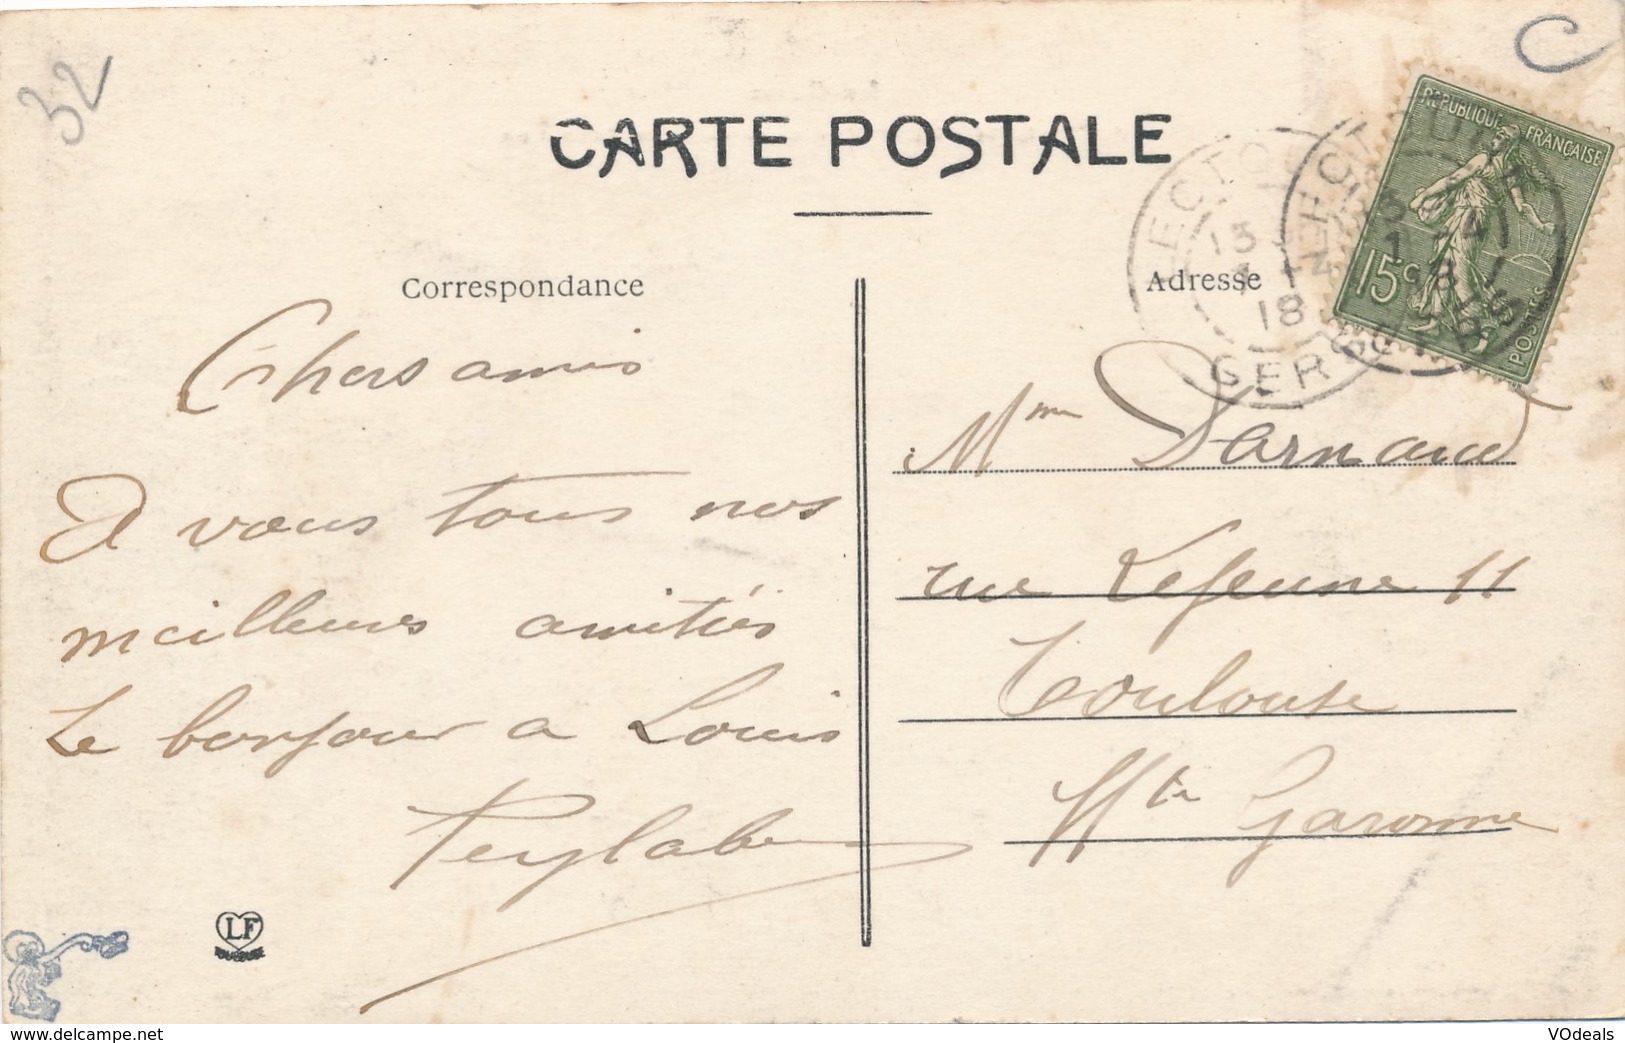 32
C
CARTE POSTALE
REPUBLIQUE FRANÇAISE
15c
POSTES
LECTOURE
13
18
GERS
Correspondance
Adresse
Chers amis
A vous tous nos
meilleures amitiés
Le bonjour a Louis
Mme Darnaud
rue Lejeune 11
Toulouse
Hte Garonne
LF
TOULOUSE
www.delcampe.net
VOdeals